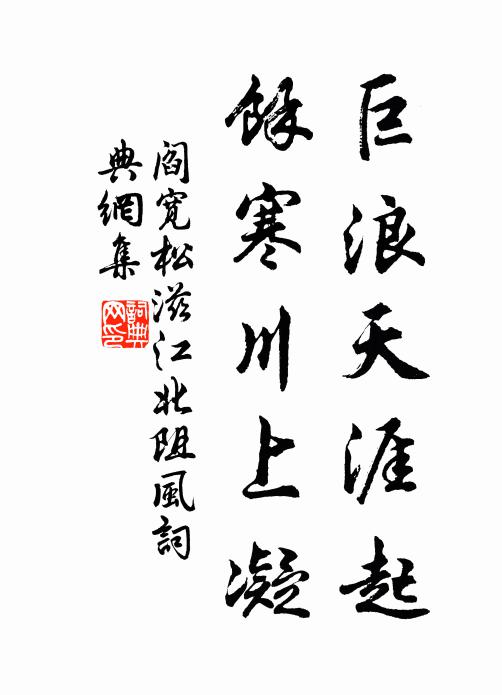 巨浪天涯起
餘寒川上凝
閻寬松滋江北阻風詞
典網集
詞典網印